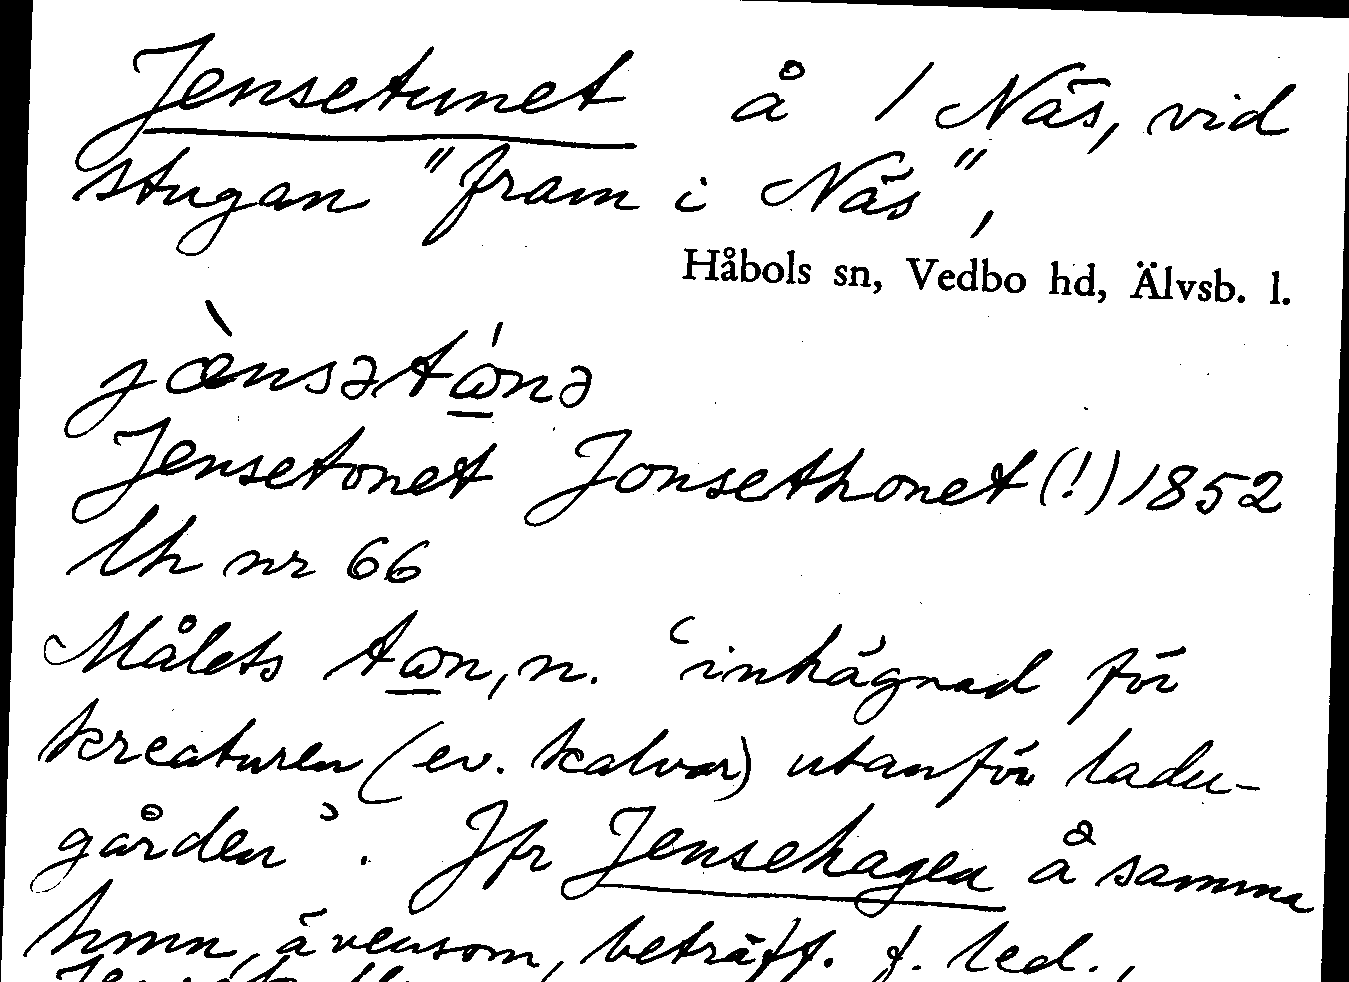 Jensetunet å 1 Näs, vid
stugan "fram i Näs",
Håbols sn, Vedbo hd, Älvsb. l.
jæ̀nsətώ̲nə
Jensetonet Jonsethonet (!) 1852
lh nr 66
Målets tω̲n, n. 'inhägnad för
kreaturen (ev. kalvar) utanför ladu-
gården'. Jfr Jensehagen å samma
hmn, ävensom, beträff. f. led.,